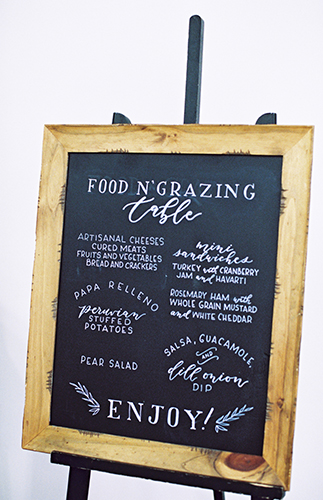 FOOD N' GRAZING
table
ARTISANAL CHEESES
CURED MEATS
FRUITS AND VEGETABLES
BREAD AND CRACKERS
PAPA RELLENO
peruvian
STUFFED
POTATOES
PEAR SALAD
mini
sandwiches
TURKEY with CRANBERRY
JAM and HAVARTI
ROSEMARY HAM with
WHOLE GRAIN MUSTARD
and WHITE CHEDDAR
SALSA, GUACAMOLE,
AND
dill onion
DIP
ENJOY!